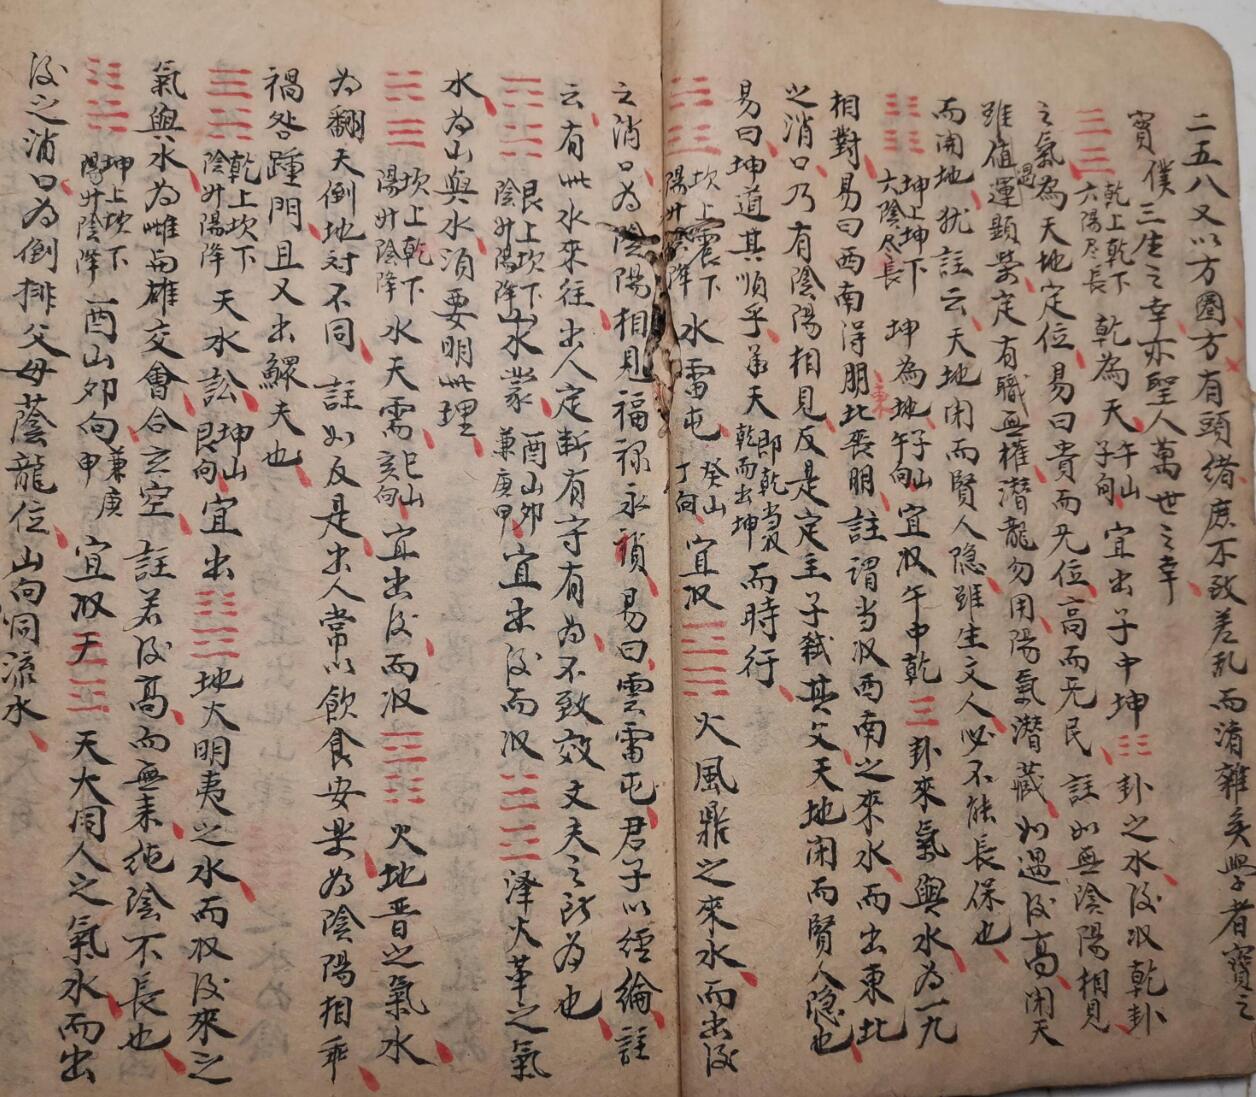 二五八又以方圈方有頭緒庶不致差乱而淆雜矣學者寶之
寶僕三生之幸亦聖人萬世之幸
☰☰乾上乾下六陽尽長乾為天午山子向宜出子中坤☷卦之水後収乾卦
之氣為天地定位易曰貴而无位高而无民註如無陰陽相見
雖值運顯榮定有職無權潜龍勿用陽氣潜藏如遇後高闭天
而開地犹註云天地闭而賢人隐雖生文人必不能長保也
☷☷坤上坤下六陰尽長坤為地子山午向宜収午中乾☰卦來氣與水為一九
相對易曰西南得朋東北丧朋註謂当収西南之來水而出東北
之消口乃有陰陽相見反是定主子弒其父天地闭而賢人隐也
易曰坤道其順乎承天即乾当収乾而出坤而時行
☵☳坎上震下陽升陰降水雷屯癸山丁向宜収☲☴火風鼎之來水而出後
之消口為陰陽相見福禄永禎易曰雲雷屯君子以經綸註
云有此水來往出人定断有守有為不致效文夫之所為也
☶☵艮上坎下陰升陽降山水蒙酉山卯向兼庚甲宜出後而収☱☲泽火革之氣
水為山與水須要明此理
☵☰坎上乾下陽升陰降水天需巳山亥向宜出後而収☲☷火地晋之氣水
為翻天倒地対不同註如反是出人常以飲食安樂為陰陽相乖
禍咎踵門且又出鰥夫也
☰☵乾上坎下陰升陽降天水訟坤山艮向宜出☷☲地火明夷之水而収後來之
氣與水為雌與雄交會合玄空註若後高而無耒純陰不長也
☷☵坤上坎下陽升陰降酉山卯向兼庚甲宜収天☰☲天火同人之氣水而出
後之消口為倒排父母蔭龍位山向同流水